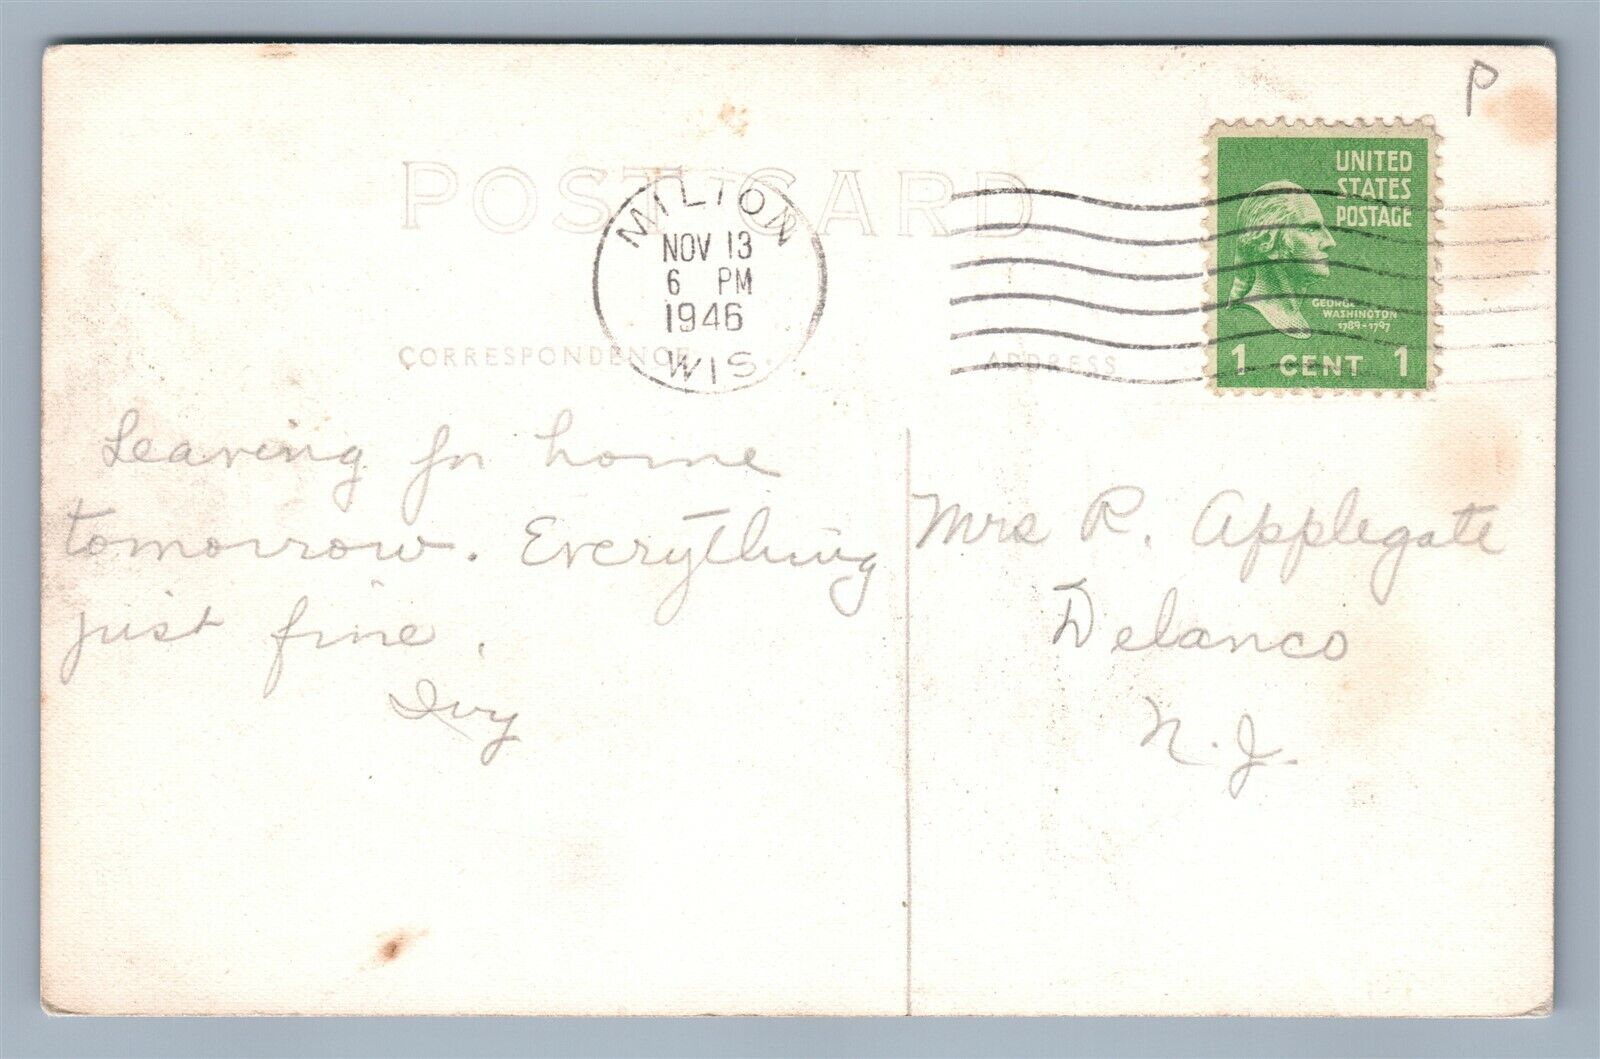 P
POST CARD
MILTON
NOV 13
6 PM
1946
WIS.
UNITED
STATES
POSTAGE
GEORGE
WASHINGTON
1789-1797
1 CENT 1
CORRESPONDENCE
ADDRESS
Leaving for home
tomorrow. Everything
just fine.
Ivy
Mrs R. Applegate
Delanco
N.J.